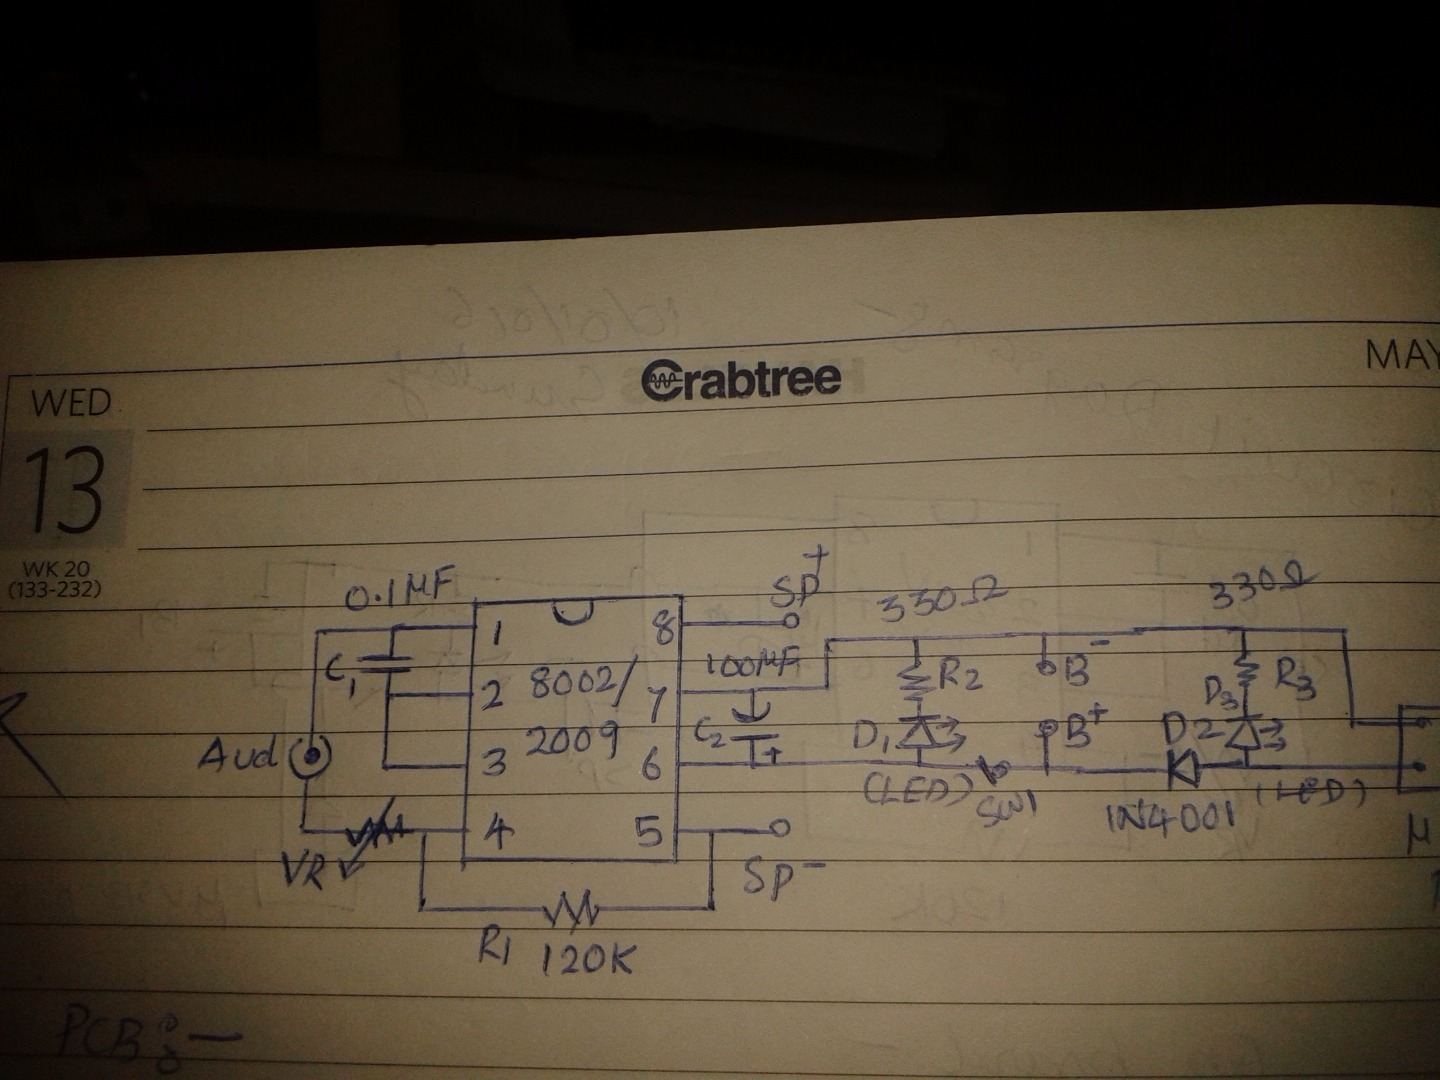 Crabtree
MAY
WED
13
WK 20
(133-232)
0.1µF
SP+
330Ω
330Ω
1
8
C1
100µF
R2
B-
R3
2
8002/
7
D3
Aud
2009
C2
+
D1
B+
D2
3
6
(LED)
SW1
1N4001
(LED)
4
5
VR
SP-
R1
120K
PCB:-